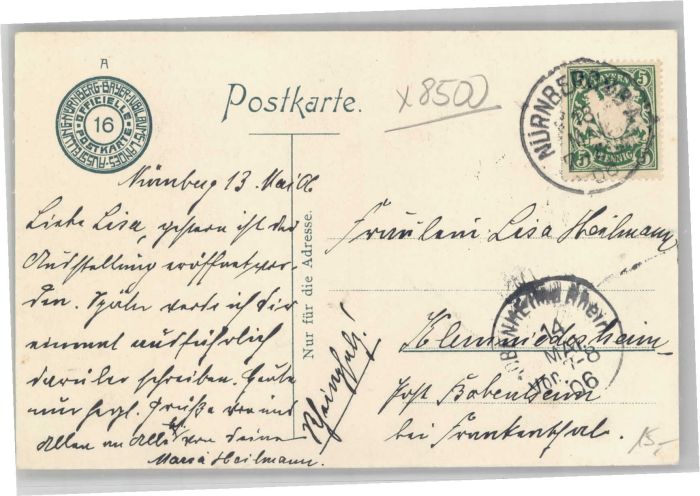 A
NÜRNBERG·BAYER·JUBILÄUMS-LANDES-AUSSTELLUNG
OFFICIELLE POSTKARTE
16
Postkarte.
x8500
NÜRNBERG
BAYERN
5 5
5 PFENNIG 5
Nürnberg 13 Mai 06
Liebe Lisa, gestern ist die
Ausstellung eröffnet wor-
den. Später werde ich dir
einmal ausführlich
darüber schreiben. Heute
nur hzgl. Grüße von uns
Allen an Alle von deiner
Maria Heilmann.
Nur für die Adresse.
Fräulein Lisa Heilmann
Kleinniedesheim
Post Bobenheim
bei Frankenthal.
Rheinpfalz!
BOBENHEIM a Rhein
14
MAI
Vor. 7-8
06
15,-